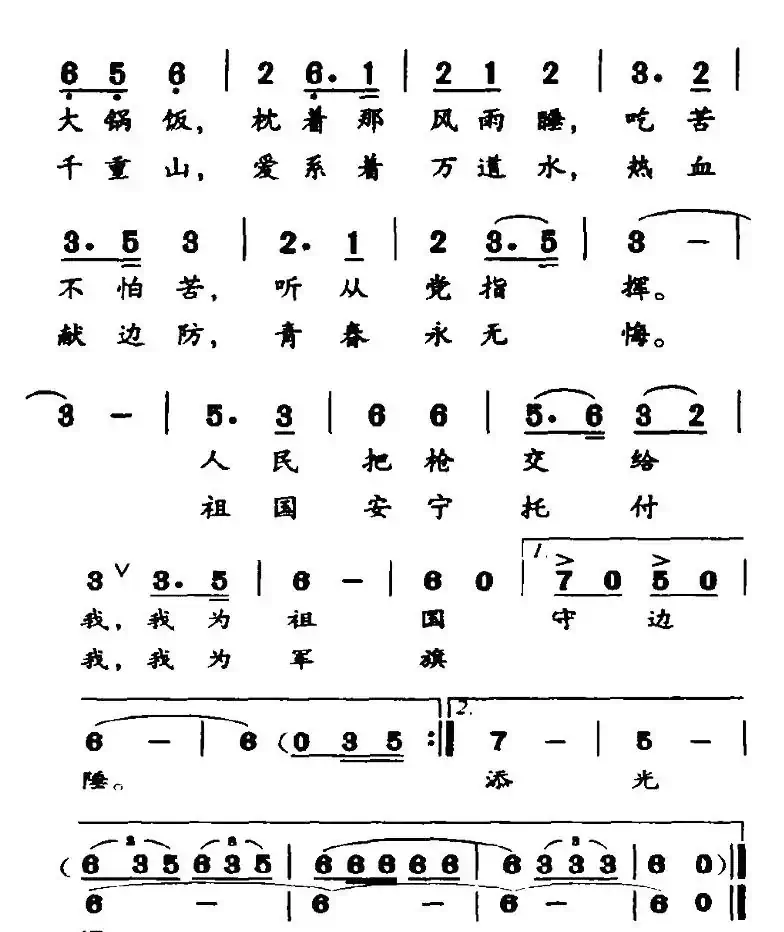 6 5 6 | 2 6. 1 | 2 1 2 | 3. 2 |
大锅饭, 枕着那 风雨睡, 吃苦
千重山, 爱系着 万道水, 热血
3. 5 3 | 2. 1 | 2 3. 5 | 3 - |
不怕苦, 听从 党指 挥。
献边防, 青春 永无 悔。
3 - | 5. 3 | 6 6 | 5. 6 3 2 |
人民 把枪 交给
祖国 安宁 托付
3 ∨ 3. 5 | 6 - | 6 0 | 1. 7 0 5 0 |
我, 我为 祖 国 守边
我, 我为 军 旗
6 - | 6 (0 3 5 :| 2. 7 - | 5 - |
陲。 添 光
(6 3 5 6 3 5 | 6 6 6 6 6 | 6 3 3 3 | 6 0) |
6 - | 6 - | 6 - | 6 0 |